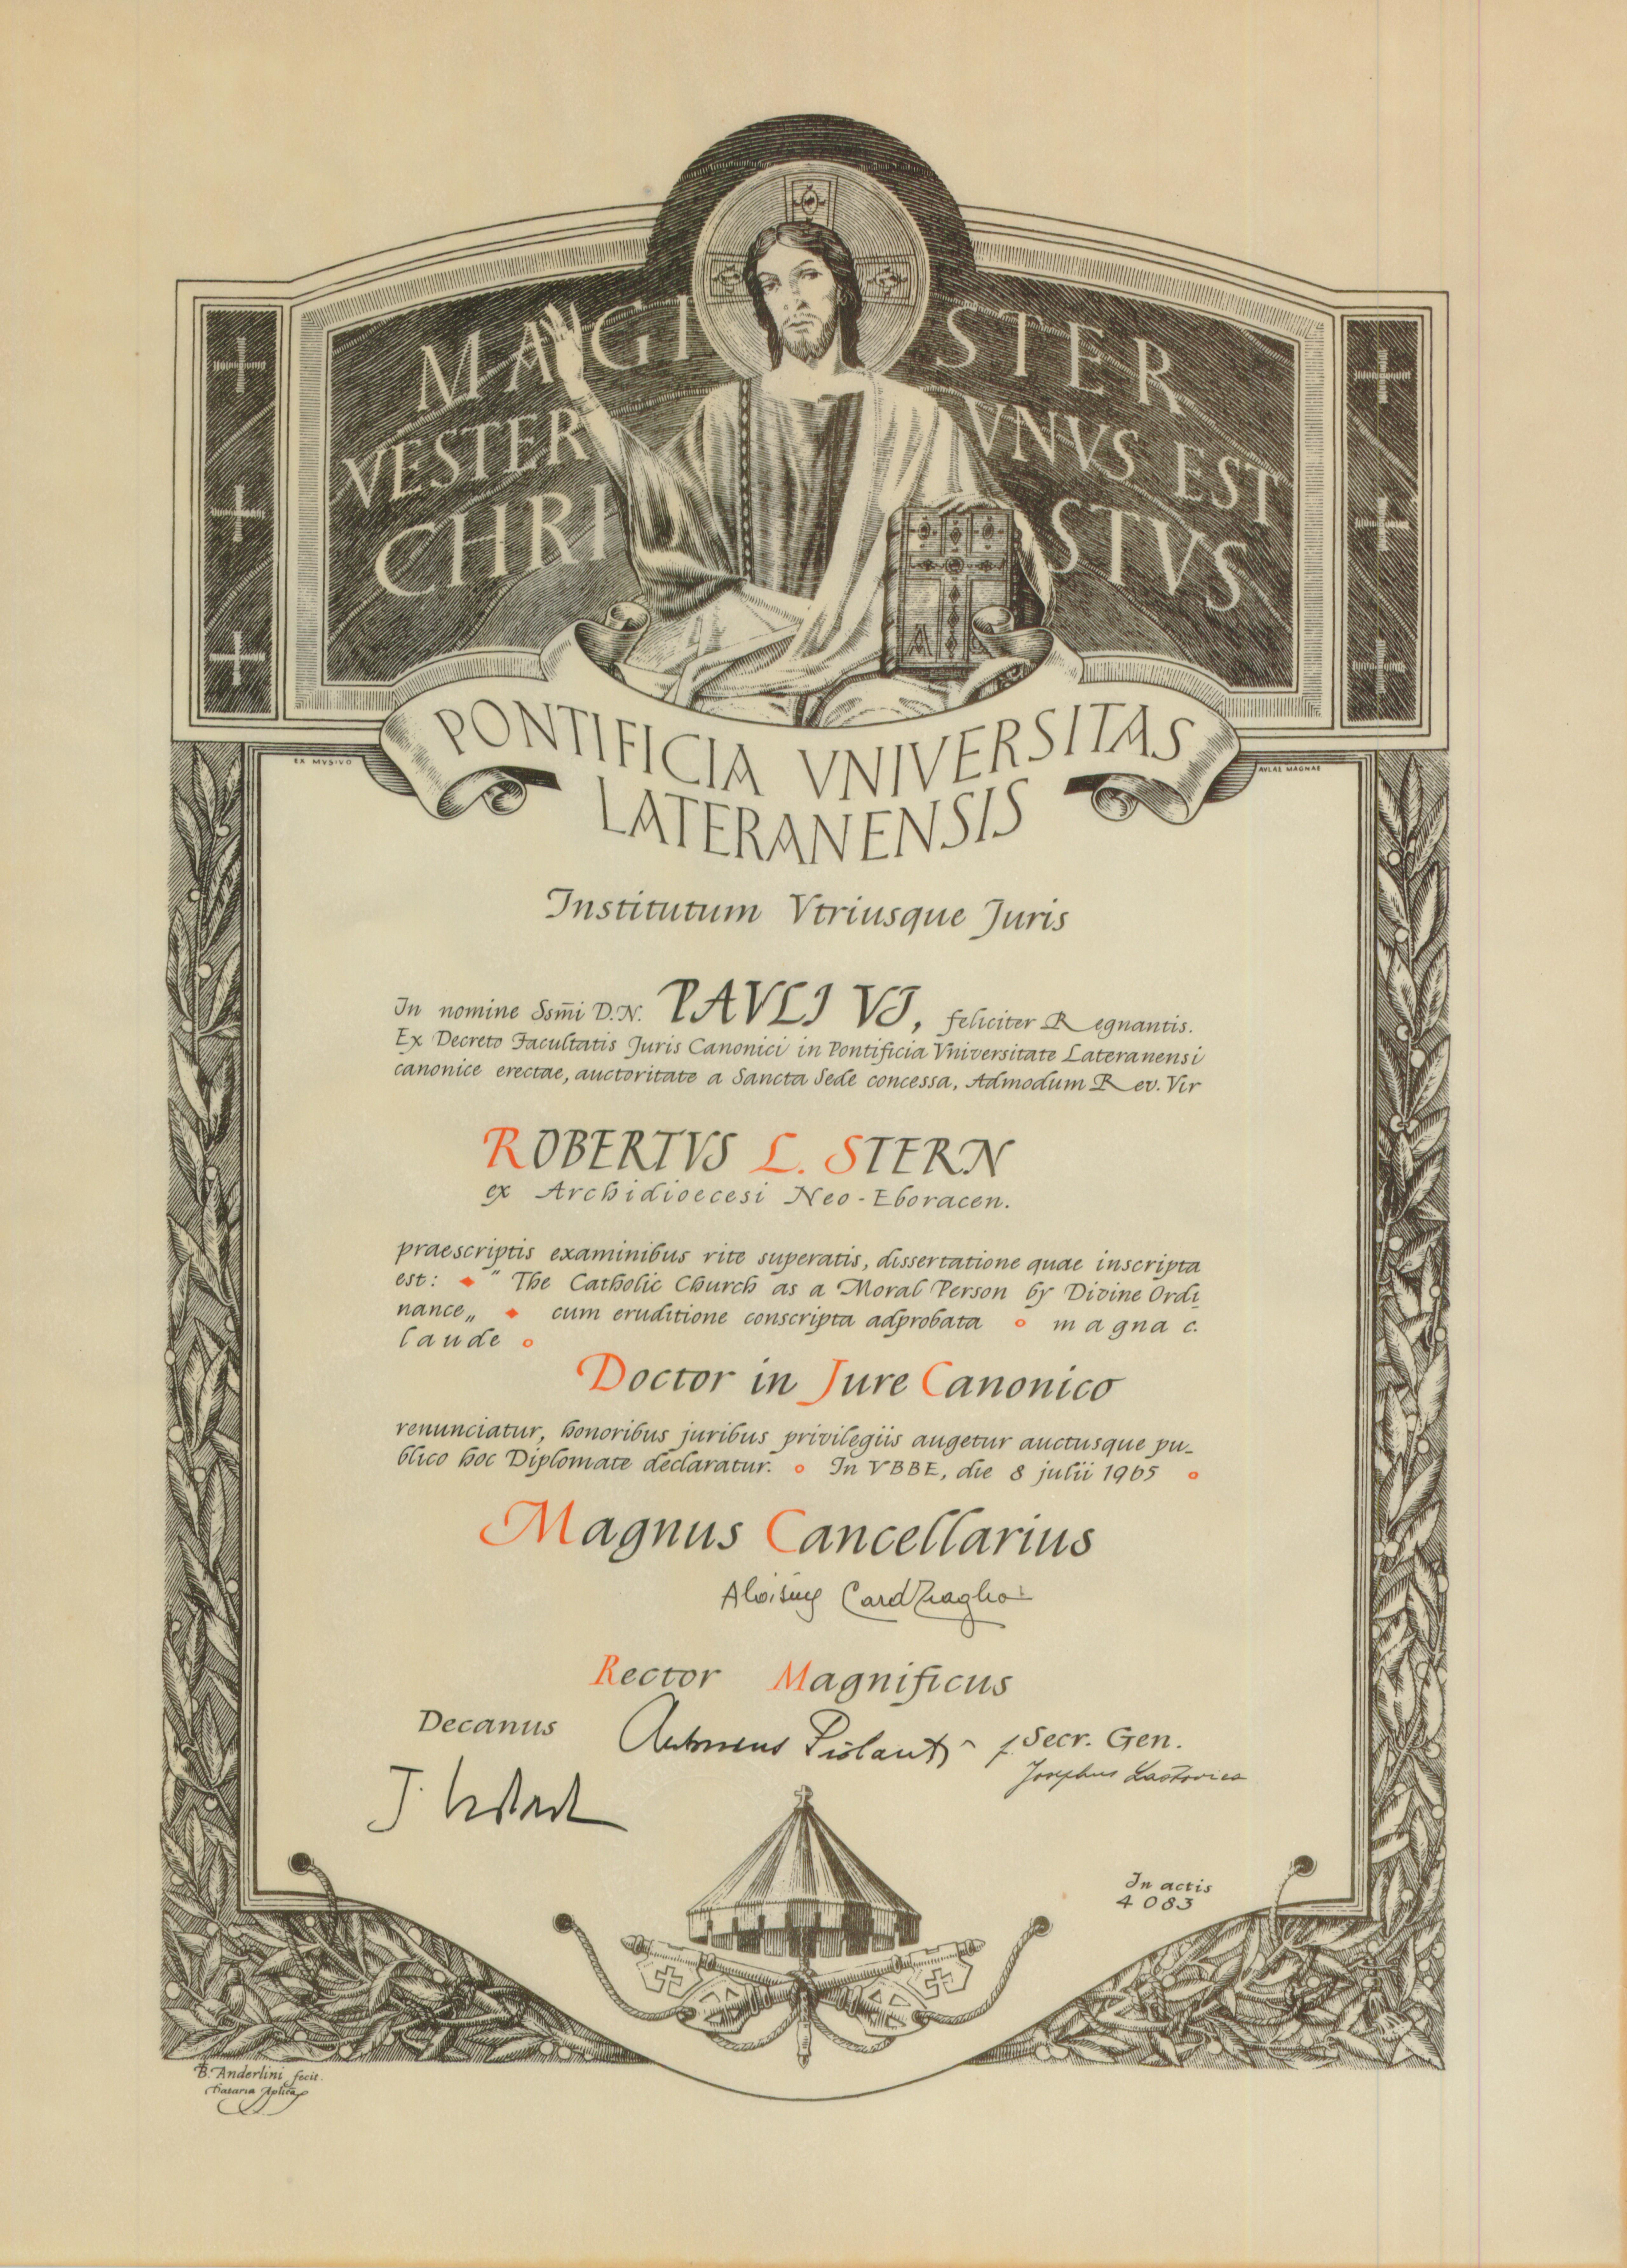 MAGISTER
VESTER VNVS EST
CHRISTVS
PONTIFICIA VNIVERSITAS
LATERANENSIS
EX MVSIVO
AVLAE MAGNAE
Institutum Vtriusque Juris
In nomine Ssm̄i D.N. PAVLI VI, feliciter Regnantis.
Ex Decreto Facultatis Juris Canonici in Pontificia Vniversitate Lateranensi
canonice erectae, auctoritate a Sancta Sede concessa, Admodum Rev. Vir
ROBERTVS L. STERN
ex Archidioecesi Neo-Eboracen.
praescriptis examinibus rite superatis, dissertatione quae inscripta
est: " The Catholic Church as a Moral Person by Divine Ordi-
nance„ cum eruditione conscripta adprobata magna c.
laude
Doctor in Jure Canonico
renunciatur, honoribus juribus privilegiis augetur auctusque pu-
blico hoc Diplomate declaratur. In VRBE, die 8 julii 1965
Magnus Cancellarius
Aloisius Card Traglia
Rector Magnificus
Decanus
Antonius Piolanti
f. Secr. Gen.
Josephus
J.
In actis
4083
B. Anderlini fecit.
Dataria Aplica